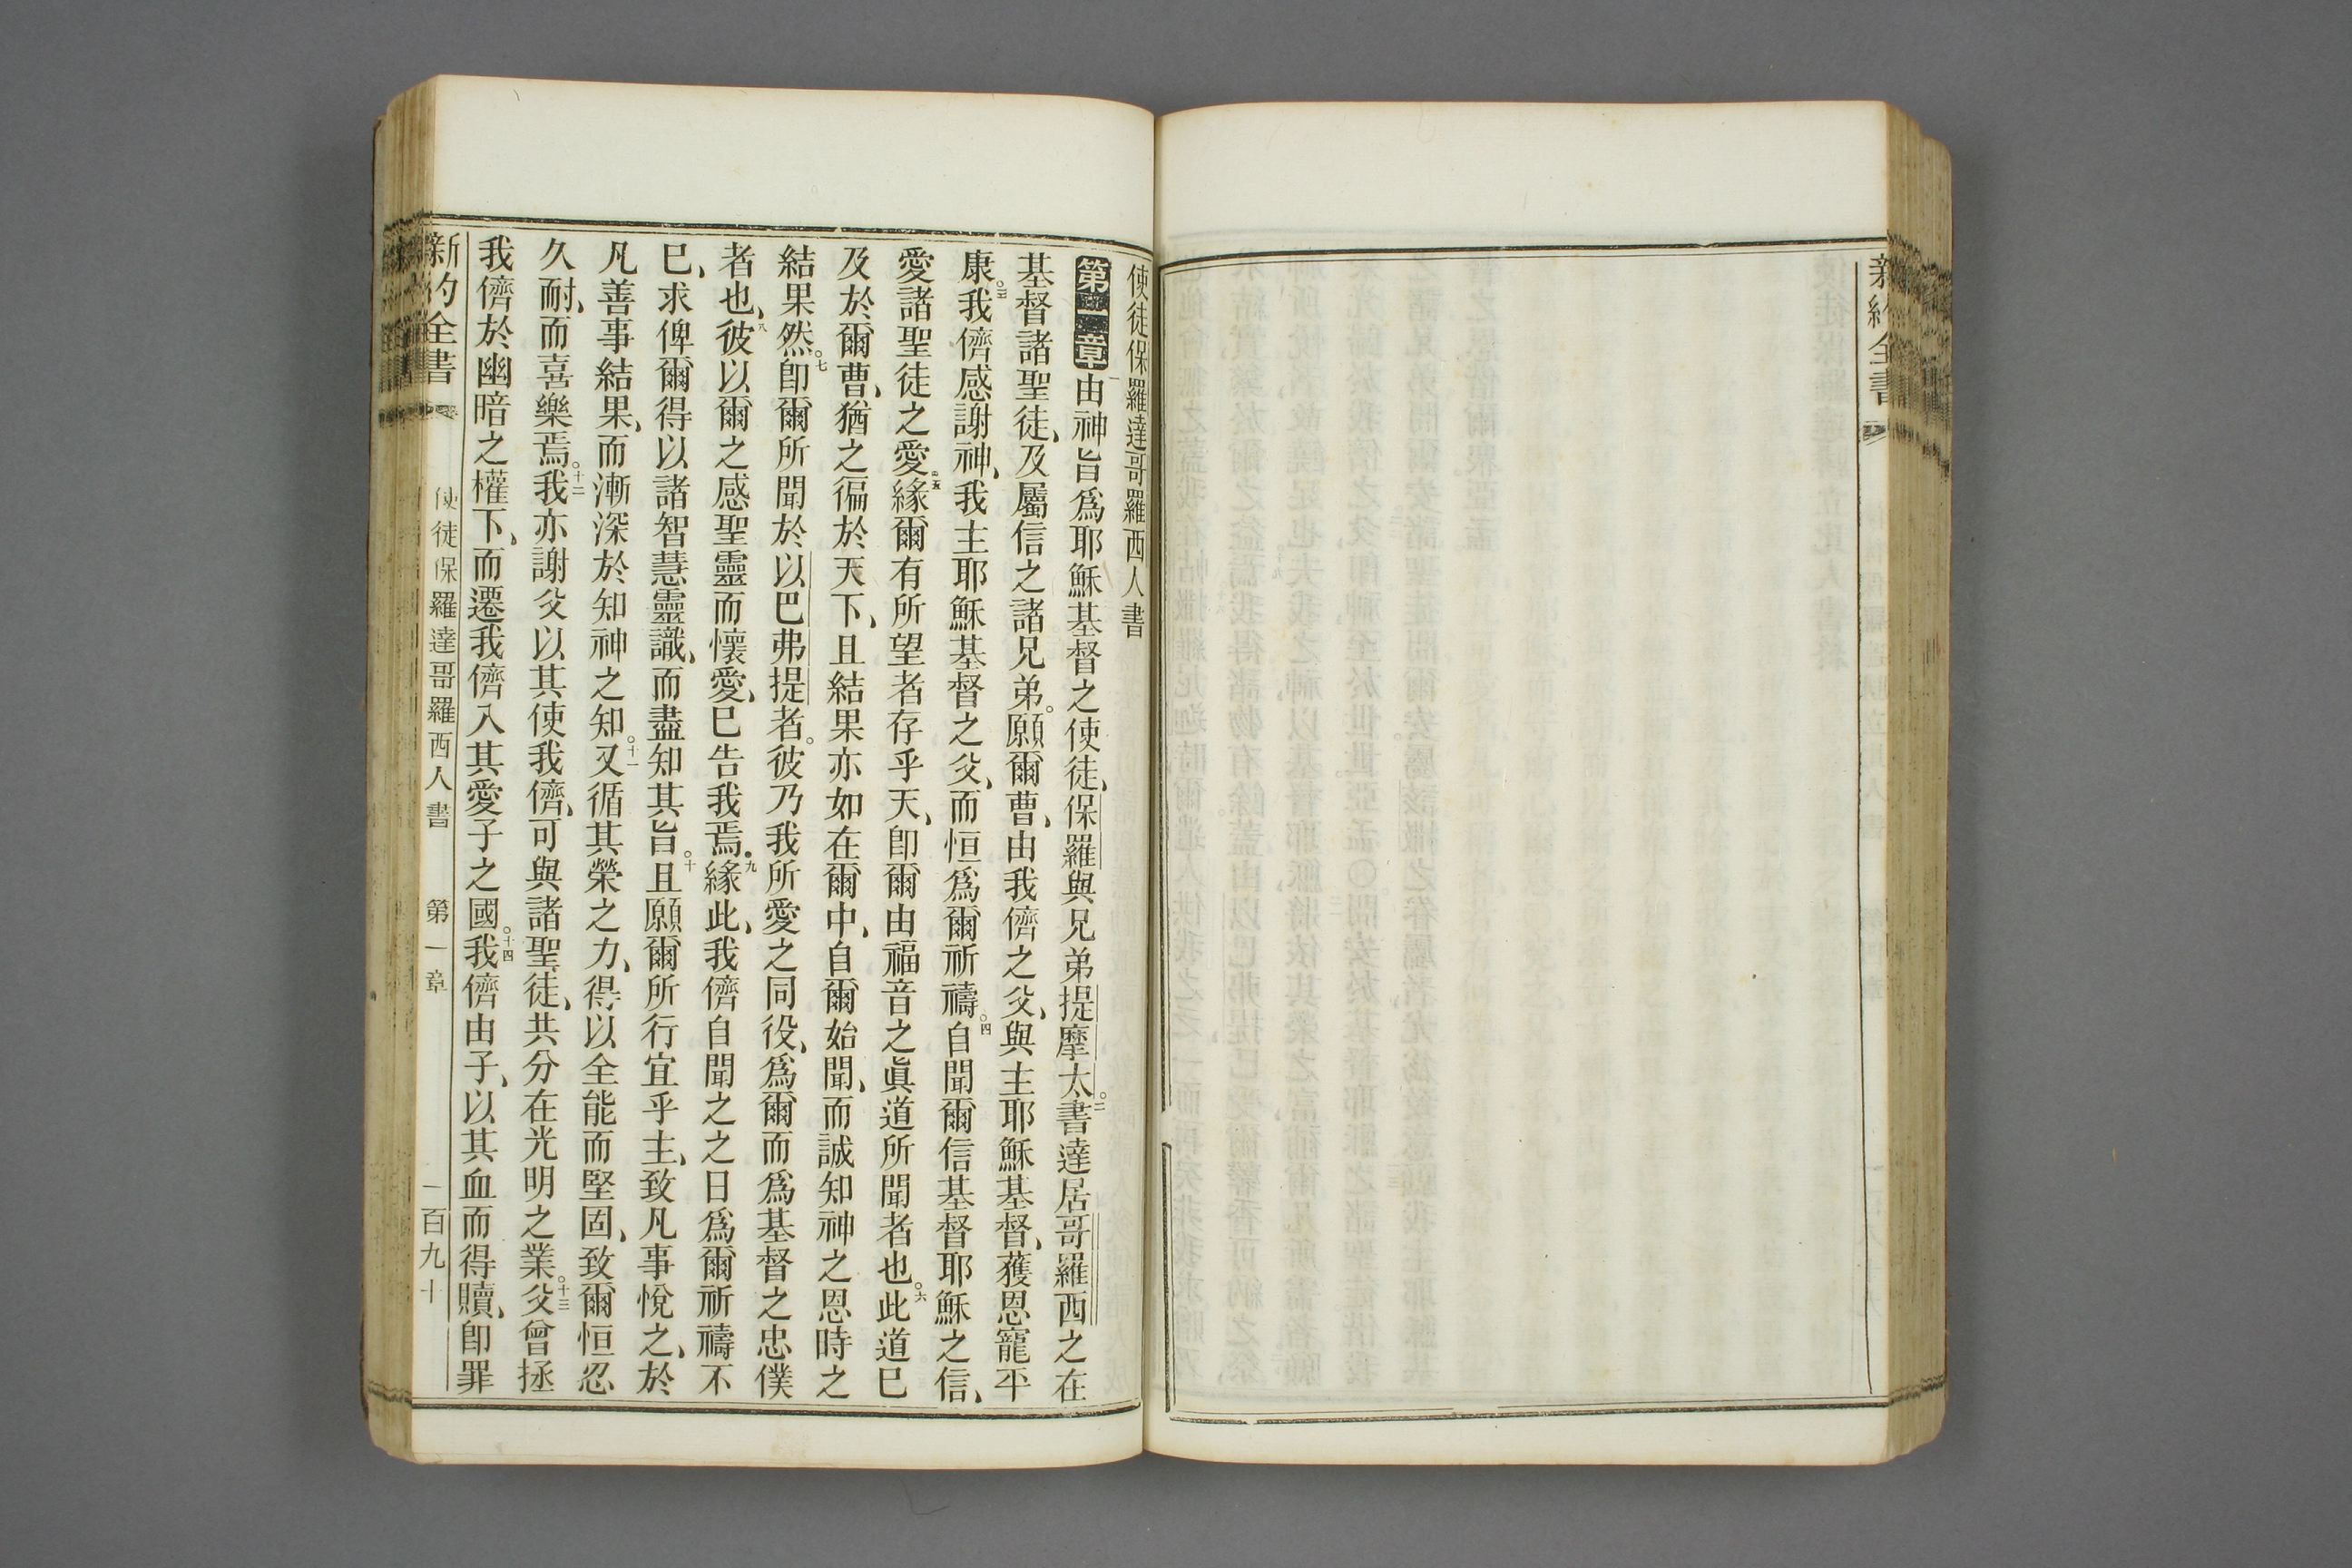 新約全書
使徒保羅達哥羅西人書
第一章 一由神旨爲耶穌基督之使徒、保羅與兄弟提摩太。二書達居哥羅西之在
基督諸聖徒、及屬信之諸兄弟。願爾曹、由我儕之父、與主耶穌基督、獲恩寵平
康。三我儕感謝神、我主耶穌基督之父、而恒爲爾祈禱。四自聞爾信基督耶穌之信、
愛諸聖徒之愛、五緣爾有所望者存乎天、卽爾由福音之眞道所聞者也。六此道已
及於爾曹、猶之徧於天下、且結果亦如在爾中、自爾始聞、而誠知神之恩時之
結果然。七卽爾所聞於以巴弗提者。彼乃我所愛之同役、爲爾而爲基督之忠僕
者也、八彼以爾之感聖靈而懷愛、已告我焉。九緣此、我儕自聞之之日爲爾祈禱不
已、求俾爾得以諸智慧靈識、而盡知其旨。十且願爾所行宜乎主、致凡事悅之、於
凡善事結果、而漸深於知神之知。十一又循其榮之力、得以全能而堅固、致爾恒忍
久耐、而喜樂焉。十二我亦謝父以其使我儕、可與諸聖徒、共分在光明之業。十三父曾拯
我儕於幽暗之權下、而遷我儕入其愛子之國。十四我儕由子、以其血而得贖、卽罪
新約全書 使徒保羅達哥羅西人書 第一章 一百九十